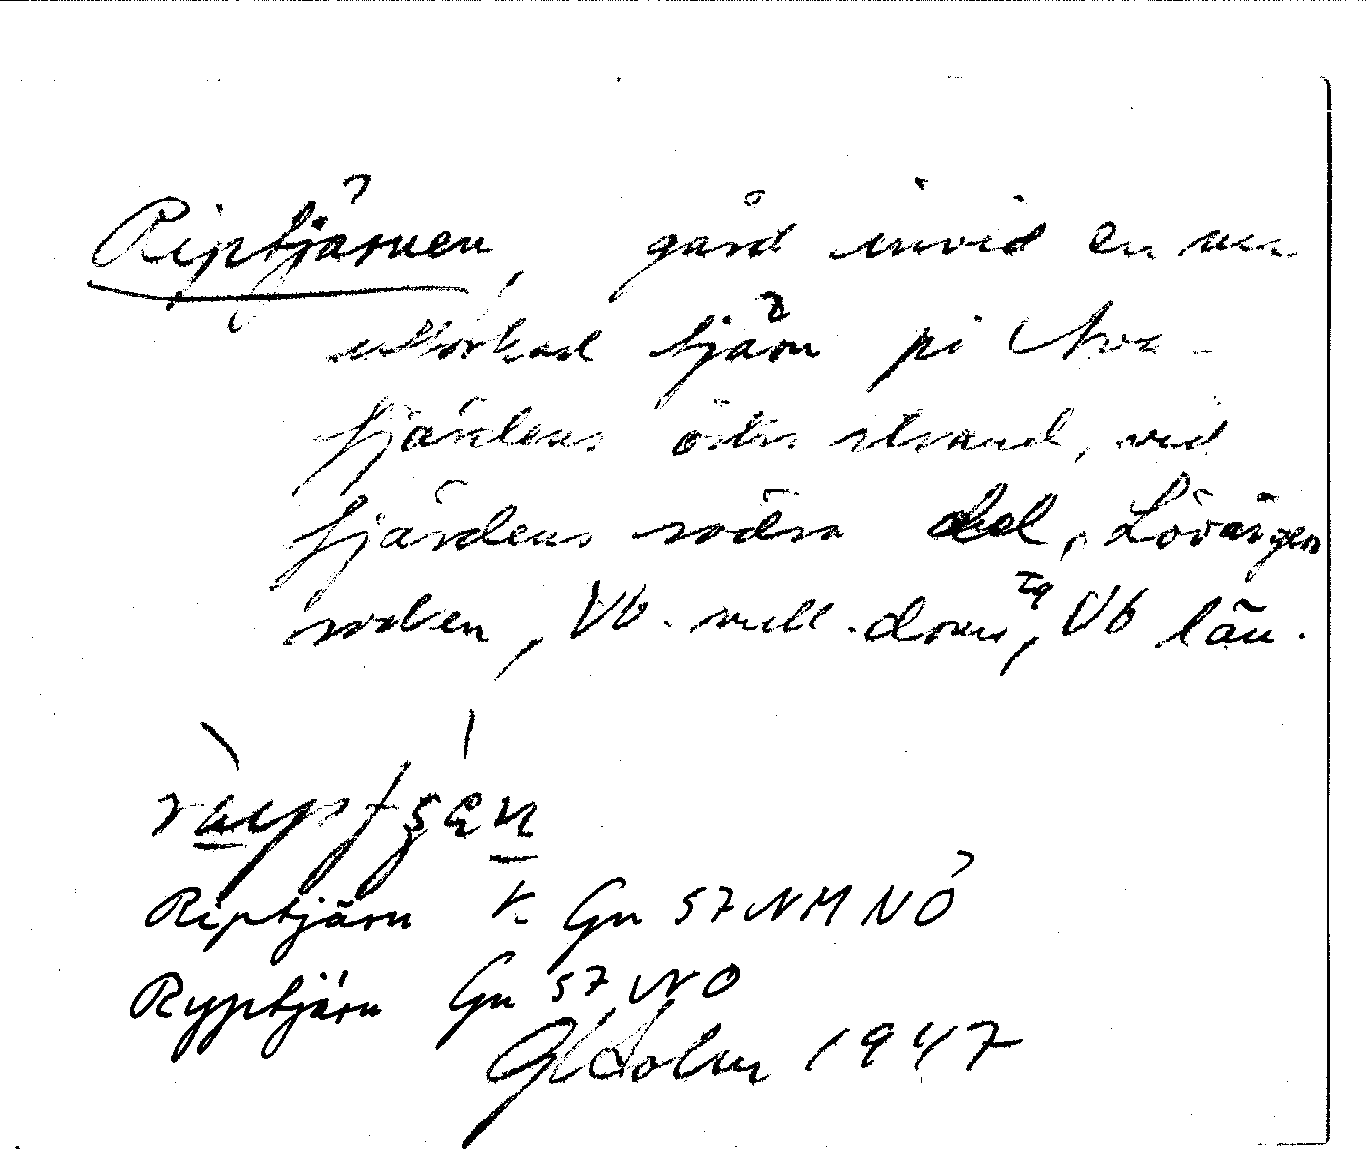 Riptjärnen, gård invid en nu
uttorkad tjärn på Ava-
fjärdens östra strand, vid
fjärdens södra del, Lövånger
socken, Vb. mell. doms, Vb län.
Riptjärn K Gn 57 NM NÖ
Ryptjärn Gn 57 NO
Holm 1947